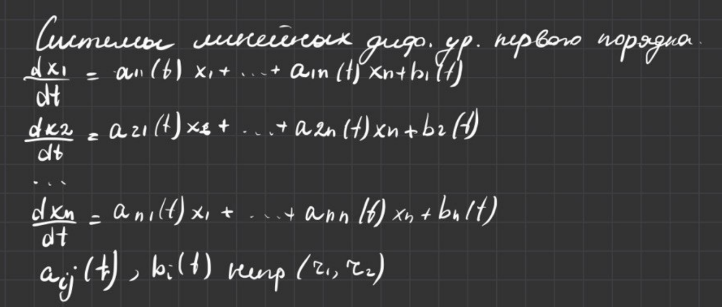 Системы линейных диф. ур. первого порядка.
dx₁/dt = a₁₁(t) x₁ + ... + a₁ₙ(t) xₙ + b₁(t)
dx₂/dt = a₂₁(t) x₂ + ... + a₂ₙ(t) xₙ + b₂(t)
...
dxₙ/dt = aₙ₁(t) x₁ + ... + aₙₙ(t) xₙ + bₙ(t)
aᵢⱼ(t), bᵢ(t) непр (τ₁, τ₂)